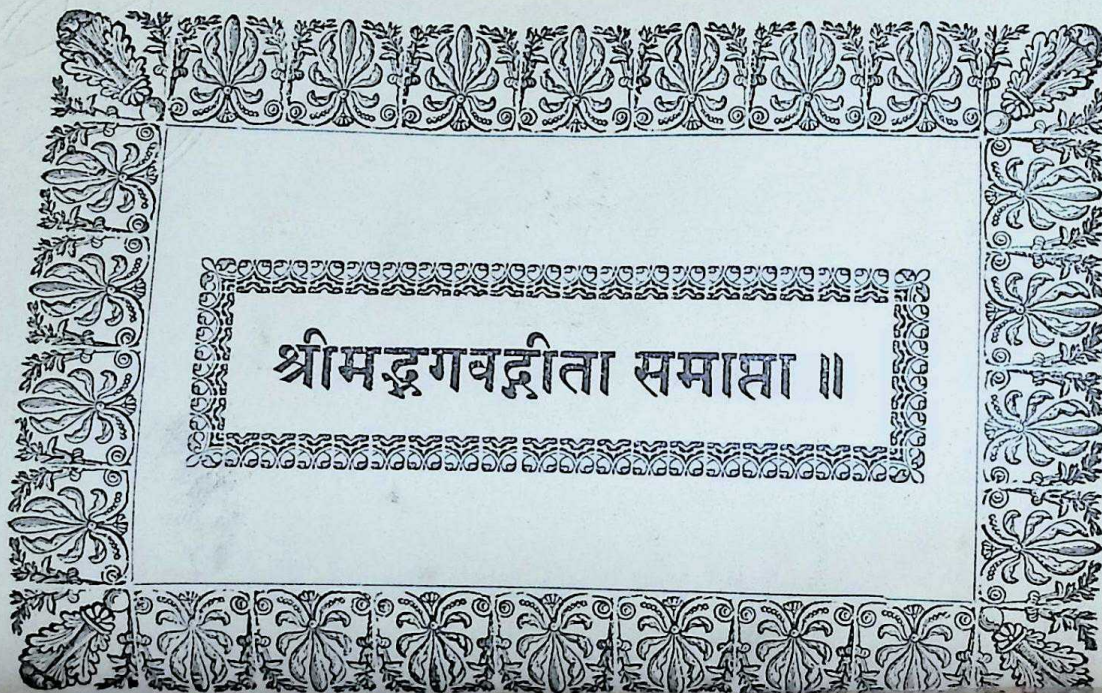 श्रीमद्भगवद्गीता समाप्ता ॥